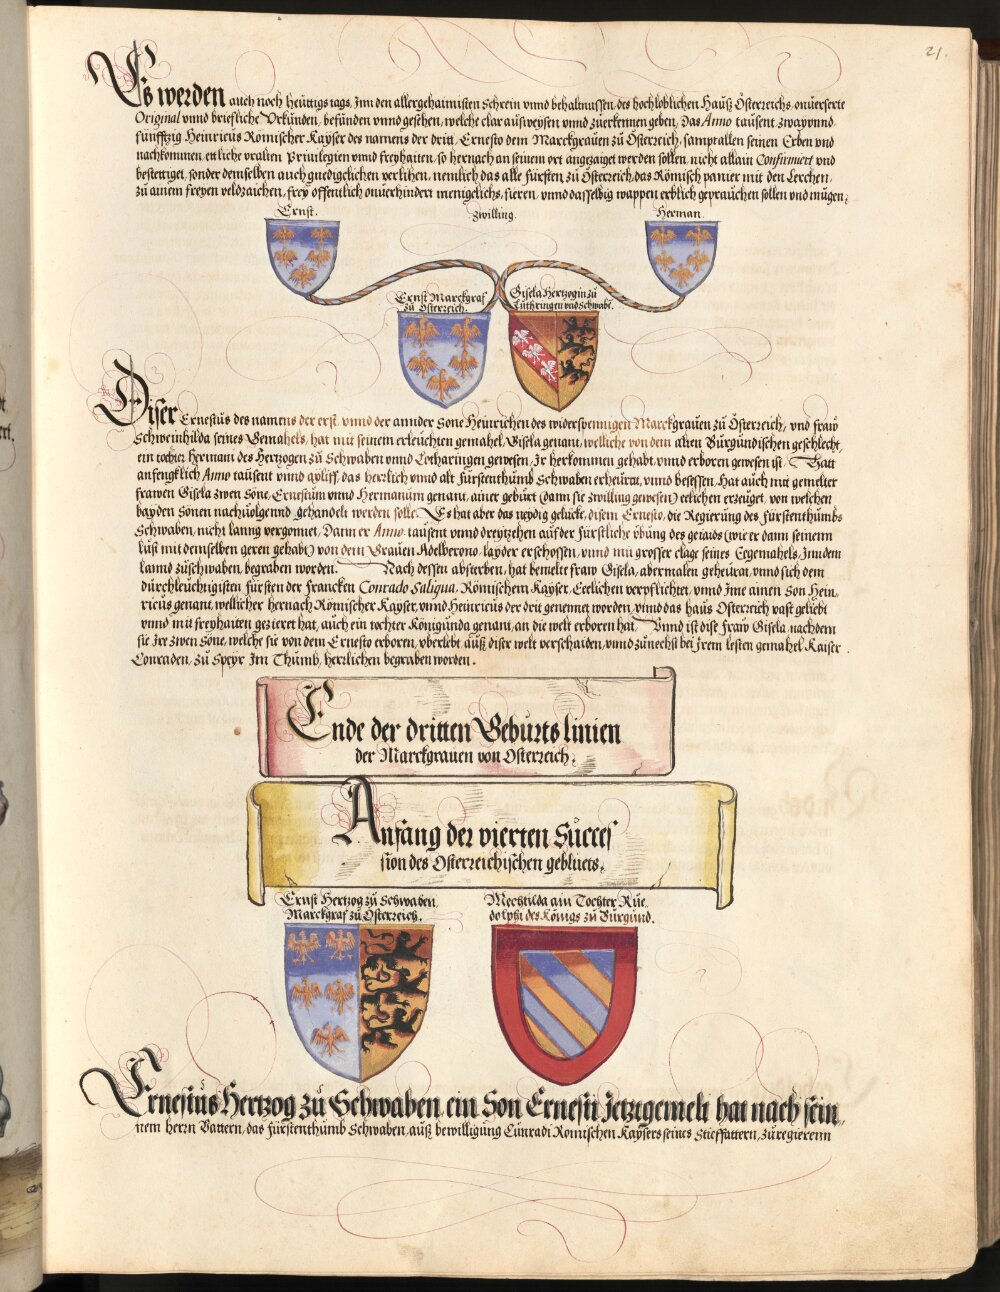 21.
Es werden auch noch heüttigs tags, Inn den allergehaimisten Schrein vnnd behaltnussen, des hochloblichen Hauß Österreichs, onuerserte
Original vnnd briefliche Vrkünden, befünden vnnd gesehen, welche clar außweysen vnnd zuerkennen geben, Das Anno taüsent zwayvnnd
fünfftzig Heinricus Römischer Kayser des namens der drit, Ernesto dem Marckgrauen zu Österreich, sampt allen seinen Erben vnd
nachkommen, ettliche vralten Priuilegien vnnd freyhaiten, so hernach an seinem ort angezaiget werden sollen, nicht allain Confirmiert vnd
bestettiget, sonder demselben auch gnedigclichen verlihen, nemlich das alle fürsten zu Österreich, das Römisch panier mit den Lerchen,
zu ainem freyen veldzaichen, frey offentlich onuerhindert menigclichs, füeren, vnnd dasselbig wappen erblich gepraüchen sollen vnd mügen,
Ernst. Zwilling. Herman.
Ernst Marckgraf
zu Österreich.
Gisela Hertzogin zu
Lüthringen vnd Schwabē.
Diser Ernestus des namens der erst, vnnd der annder Sone Heinrichen des widerspennigen Marckgrauen zu Österreich, vnd fraw
Schweinhilda seines Gemahels, hat mit seinem erleüchten gemahel, Gisela genant, welliche von dem alten Bürgündischen geschlecht,
ein tochter Hermani des Hertzogen zu Schwaben vnnd Lotharingen gewesen, Ir herkommen gehabt, vnnd erboren gewesen ist. Hatt
anfengklich Anno taüsent vnnd aylliff, das herrlich vnnd alt fürstenthumb Schwaben erheürat, vnnd besessen, Hat auch mit gemelter
frawen Gisela zwen Söne, Ernestum vnnd Hermanum genant, ainer gebürt (dann sie zwilling gewesen) eelichen erzeüget, von welchen
bayden Sönen nachuolgennd gehandelt werden solle. Es hat aber das neydig gelücke, disem Ernesto, die Regierung des fürstenthumbs
Schwaben, nicht lanng vergonnet, Dann er Anno taüsent vnnd dreytzehen auf der fürstliche übung des geiaids (wie er dann seinenn
lust mit demselben geren gehabt) von dem Grauen Adelberono, layder erschossen, vnnd mit grosser clage seines Eegemahels, Inn dem
lannd zu schwaben, begraben worden. Nach dessen absterben, hat bemelte fraw Gisela, abermalen geheürat, vnnd sich dem
dürchleüchtigisten fürsten der francken Conrado Saliqua, Römischem Kayser, Eelichen verpflichtet, vnnd Ime ainen Son Hein,
ricus genant, wellicher hernach Römischer Kayser, vnnd Heinricus der drit genennet worden, vnnd das haüs Österreich vast geliebt
vnnd mit freyhaiten gezieret hat, auch ein tochter Königunda genant, an die welt erboren hat. Vnnd ist dise fraw Gisela, nachdem
sie Ire zwen Söne, welche sie von dem Ernesto erboren, vberlebt, aüß diser welt verschaiden, vnnd zunechst bei Irem lesten gemahel Kaiser
Conraden, zu Speyr Im Thümb, herrlichen begraben worden.
Ende der dritten Gebürts linien
der Marckgrauen von Österreich.
Anfang der vierten Succes
sion des Österreichischen geblüets.
Ernst Hertzog zu Schwaben,
Marckgraf zu Österreich.
Mechtilda ain Tochter Rue,
dolphi des Königs zu Bürgünd.
Ernestüs Hertzog zü Schwaben, ein Son Ernesti Jetztgemelt hat nach sein,
nem herrn Vattern, das fürstenthümb Schwaben, auß bewilligüng Cünradi Romischen Kaysers seines Stieffattern, zu regierenn